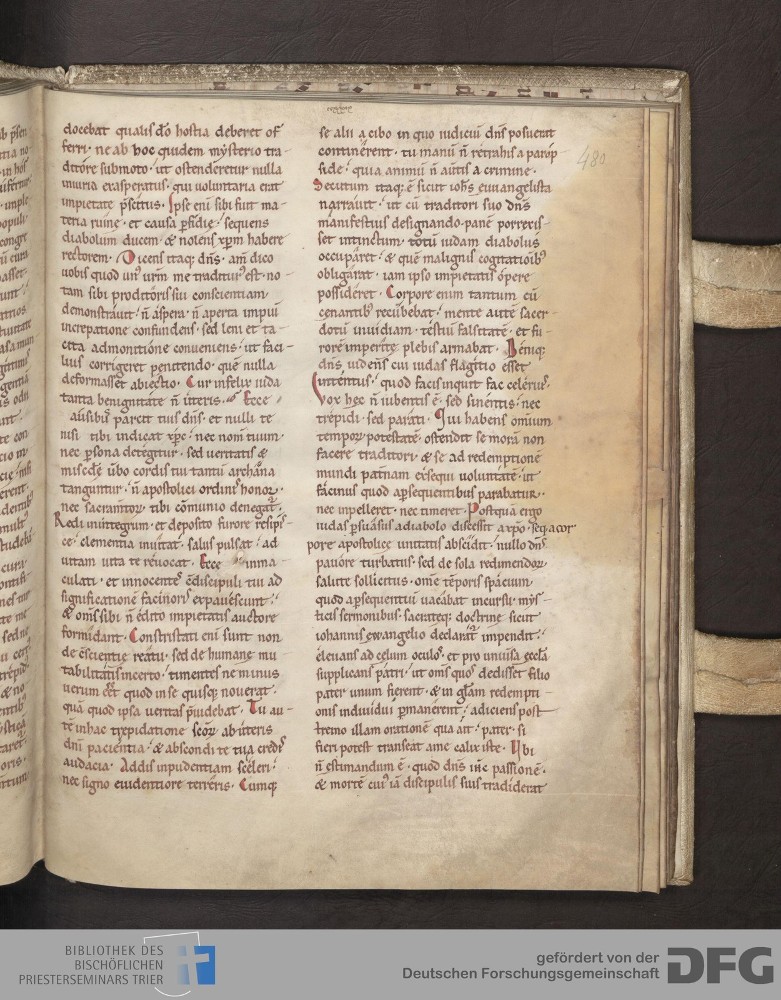 480
docebat qualis do hostia deberet of
ferri. ne ab hoc quidem mysterio tra
ditore submoto. ut ostenderetur nulla
iniuria exasperatus. qui uoluntaria erat
impietate pscitus. Ipse eni sibi fuit ma
teria ruine. et causa pfidie. sequens
diabolum ducem. & nolens xpm habere
rectorem. Dicens itaq; dns. am dico
uobis quod un urm me traditur est. no
tam sibi proditoris sui conscientiam
demonstrauit. n aspera. n aperta impiu
increpatione confundens. sed leni et ta
cita admonitione conueniens. ut faci
lius corrigeret penitendo. que nulla
deformasset abiectio. Cur infelix iuda
tanta benignitate n uteris. Ecce
ausibus parcit tuis dns. et nulli te
nisi tibi indicat xpc. nec nom tuum.
nec psona detegitur. sed ueritatis &
miscdie ubo cordis tui tantu archana
tanguntur. n apostolici ordinis honor.
nec sacramtor tibi comunio denegat.
Redi in integrum. et deposito furore resipi
ce. clementia inuitat. salus pulsat. ad
uitam uita te reuocat. Ecce inma
culati. et innocentes cdiscipuli tui ad
significatione facinoris expauescunt.
& oms sibi n edito impietatis auctore
formidant. Constristati eni sunt non
de cscientie reatu. sed de humane mu
tabilitatis incerto. timentes ne minus
uerum eet quod in se quisq; nouerat.
qua quod ipsa ueritas puidebat. Tu au
te in hac trepidatione scor ab uteris
dni pacientia. & abscondi te tua credis
audacia. Addis inpudentiam sceleri.
nec signo euidentiore terreris. Cumq
se alii a cibo in quo iudiciu dns posuerat
continerent. tu manu n retrahis a parop
side. quia animu n autis a crimine.
Secutum itaq; e sicut iohs euuangelista
narrauit. ut cu traditori suo dns
manifestius designando. pane porrexis
set intinctum. totu iudam diabolus
occuparet. & que malignis cogitationib
obligarat. iam ipso impietatis opere
possideret. Corpore enim tantum cu
cenantib recubebat. mente aute sacer
dotu inuidiam. testiu falsitate. et fu
rore imperite plebis armabat. Deniq;
dns uidens cui iudas flagitio esset
intentus. quod facis inquit fac celerius.
Vox hec n iubentis e. sed sinentis. nec
trepidi. sed parati. Qui habens omnium
tempor potestate. ostendit se mora non
facere traditori. & se ad redemptione
mundi patnam exsequi uoluntate. ut
facinus quod apsequentibus parabatur.
nec inpelleret. nec timeret. Postqua ergo
iudas psuasus a diabolo discessit a xpo. seq; a cor
pore apostolice unitatis abscidit. nullo dns
pauore turbatus. sed de sola redimendor
salute sollicitus. ome temporis spacium
quod apsequentiu uacabat incursu. mys
ticis sermonibus. sacriteq; doctrine sicut
iohannis ewangelio declarat impendit.
eleuans ad celum oculos. et pro uniusa eccla
supplicans patri. ut oms quos dedisset filio
pater unum fierent. & in glam redempti
onis indiuidui pmanerent. adiciens post
tremo illam oratione qua ait. pater. si
fieri potest transeat a me calix iste. Vbi
n estimandum e. quod dns ihc passione.
& morte cuius ia discipulis suis tradiderat
BIBLIOTHEK DES
BISCHÖFLICHEN
PRIESTERSEMINARS TRIER
gefördert von der
Deutschen Forschungsgemeinschaft
DFG